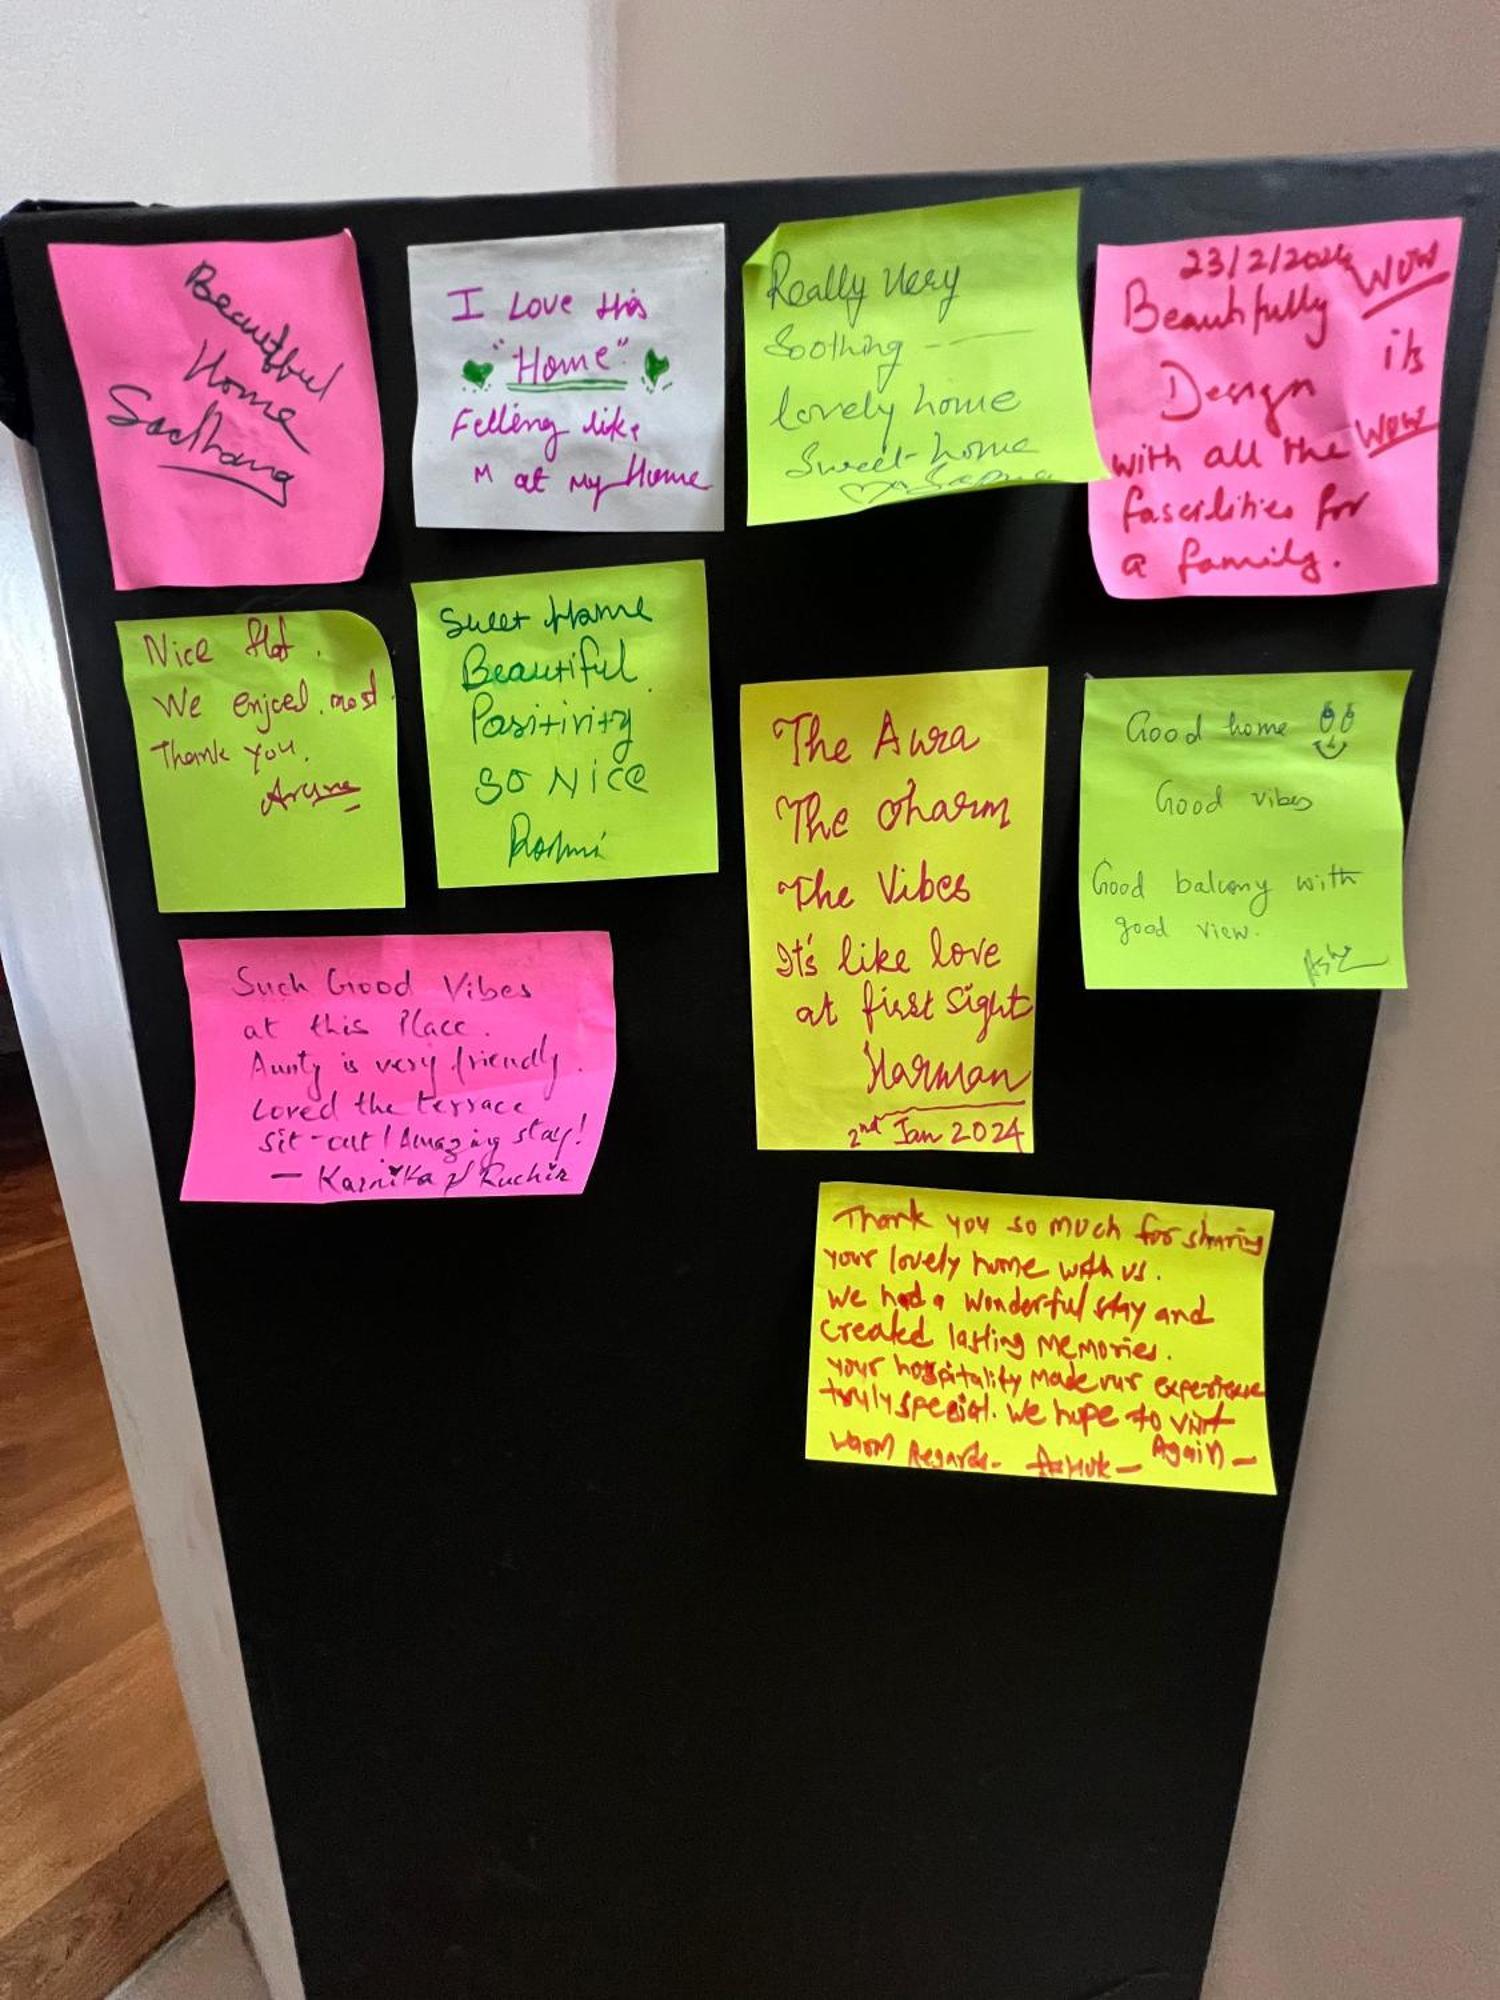 Beautiful
Home
Sadhana
I Love this
"Home"
Felling like
M at my Home
Really Very
Soothing - —
lovely home
Sweet home
23/2/2024
Beautifully
Design
with all the
fascilities for
a family.
WOW
its
WOW
Nice flat.
We enjoed most.
Thank you.
Aruna
Sweet Home
Beautiful.
Positivity
SO NICE
Rashmi
The Aura
The charm
The Vibes
It's like love
at first Sight
Harman
2nd Jan 2024
Good home
Good vibes
Good balcony with
good view.
Such Good Vibes
at this Place.
Aunty is very friendly.
Loved the terrace
sit-out! Amazing stay!
— Karnika & Ruchir
Thank you so much for sharing
your lovely home with us.
We had a wonderful stay and
created lasting memories.
your hospitality made our experience
truly special. We hope to visit
Again —
Warm Regards - Ashok —